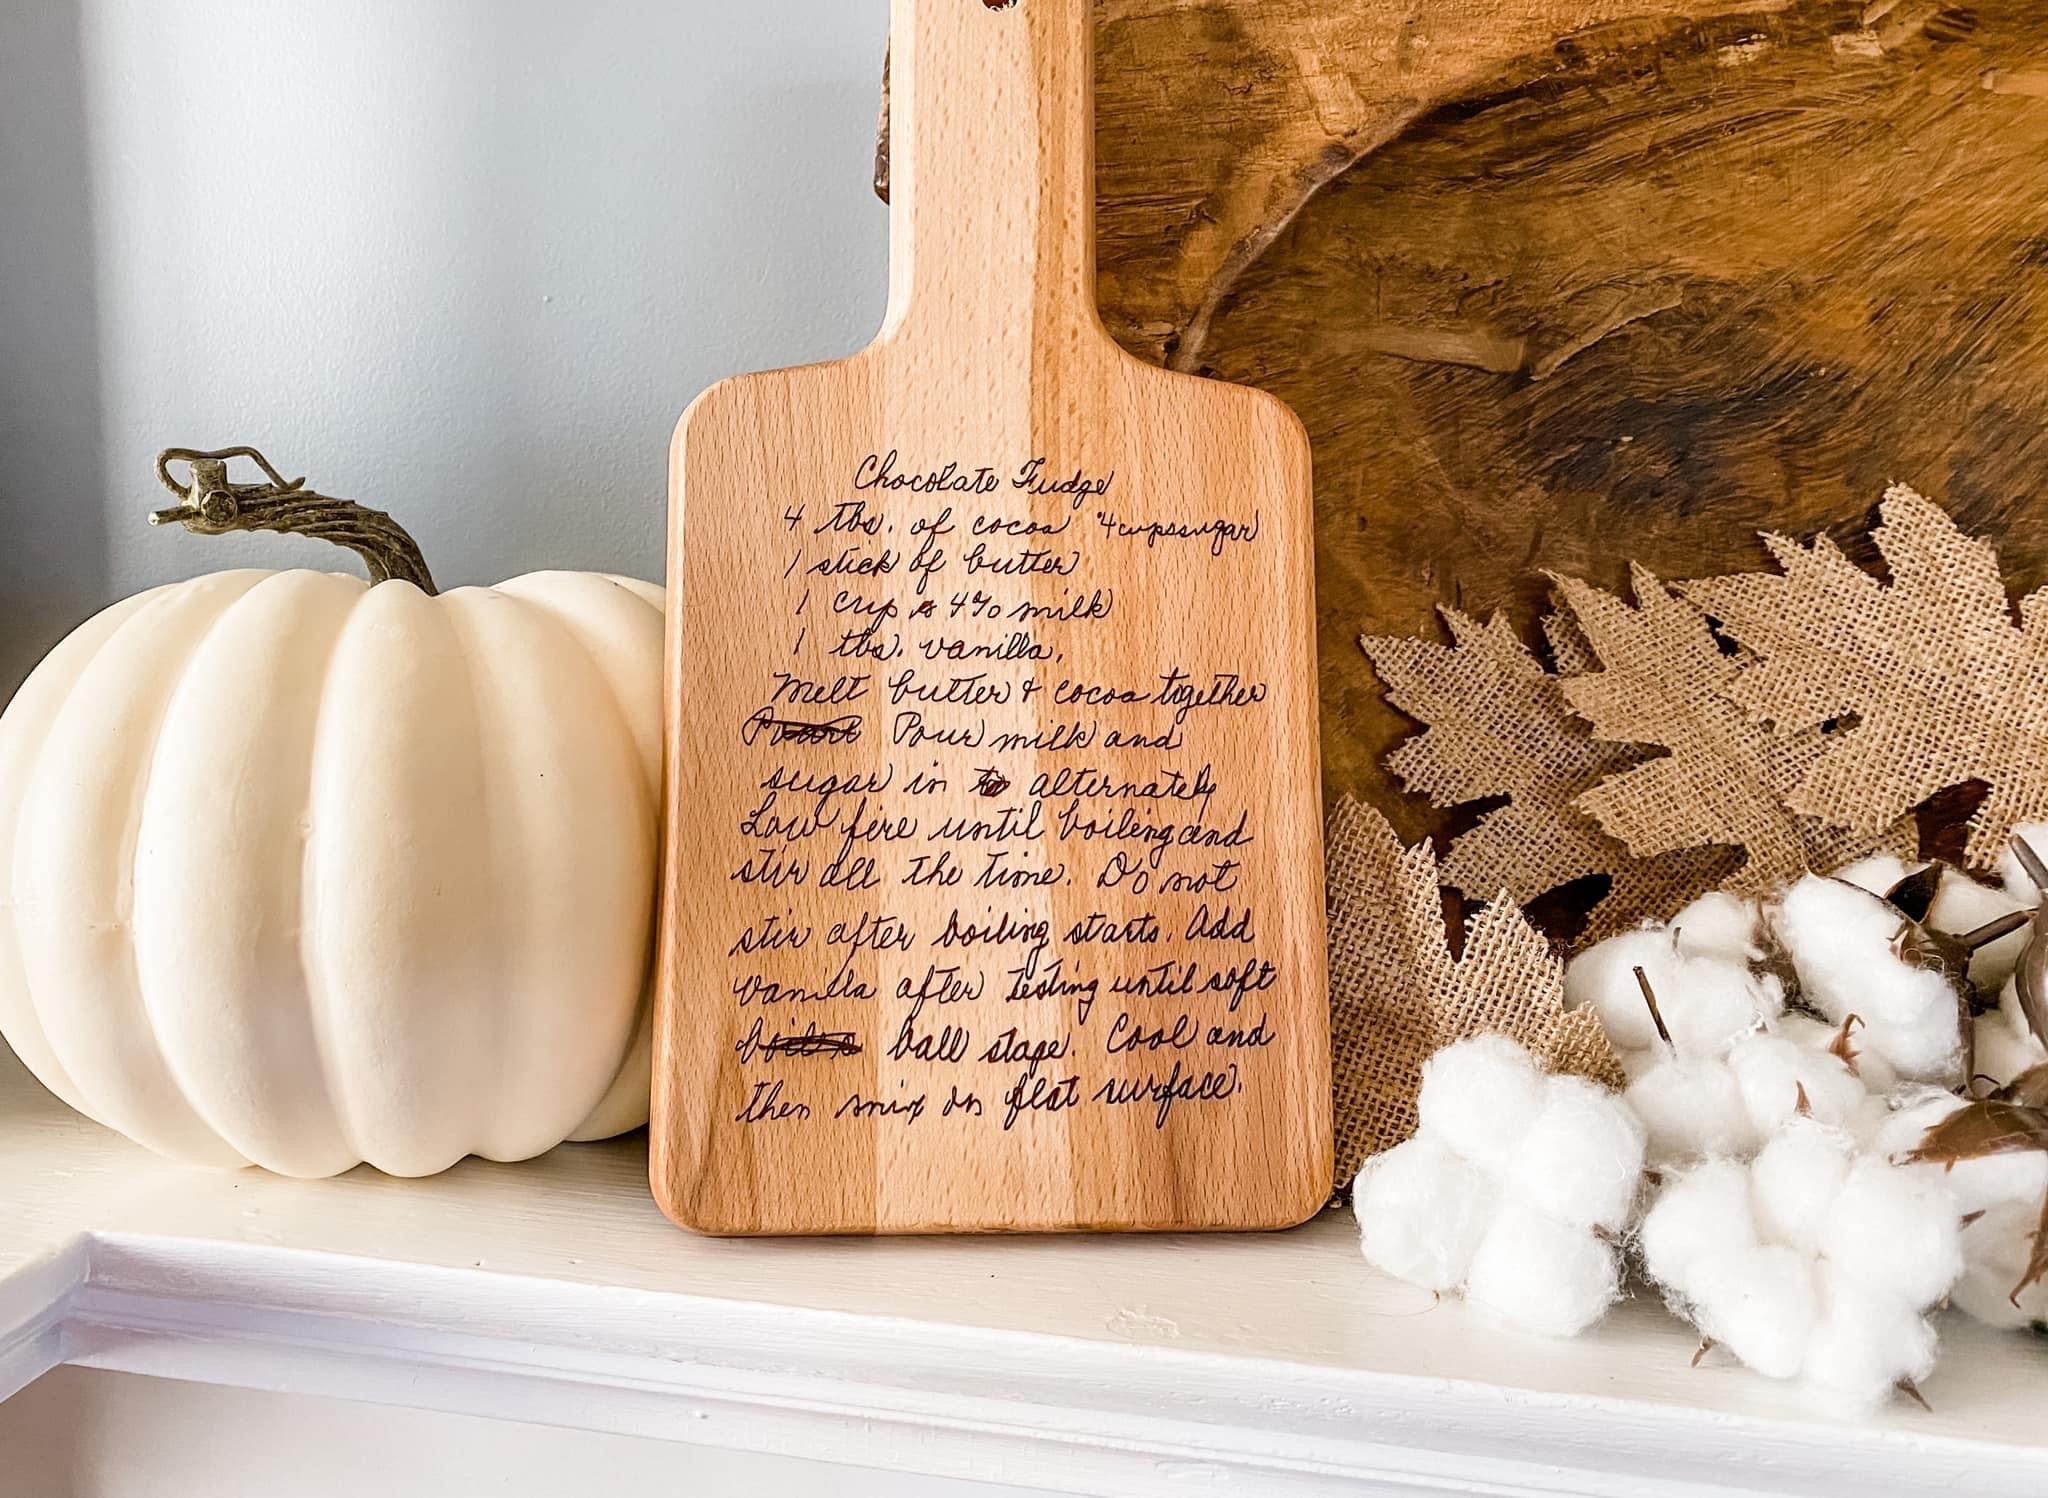 Chocolate Fudge
4 tbs. of cocoa 4 cups sugar
1 stick of butter
1 cup 4% milk
1 tbs. vanilla.
Melt butter & cocoa together
Pour milk and
sugar in alternately
Low fire until boiling and
stir all the time. Do not
stir after boiling starts. Add
vanilla after testing until soft
ball stage. Cool and
then mix on flat surface.